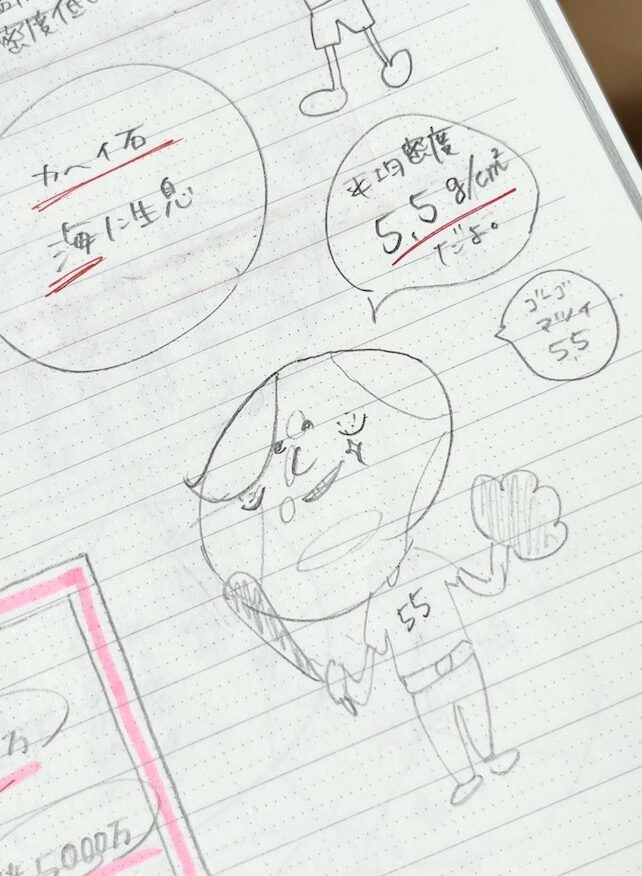 密度低い
カヘイ石
海に生息
平均密度
5.5 g/cm²
だよ。
ゴーゴー
マツイ
55
55
万
5000万